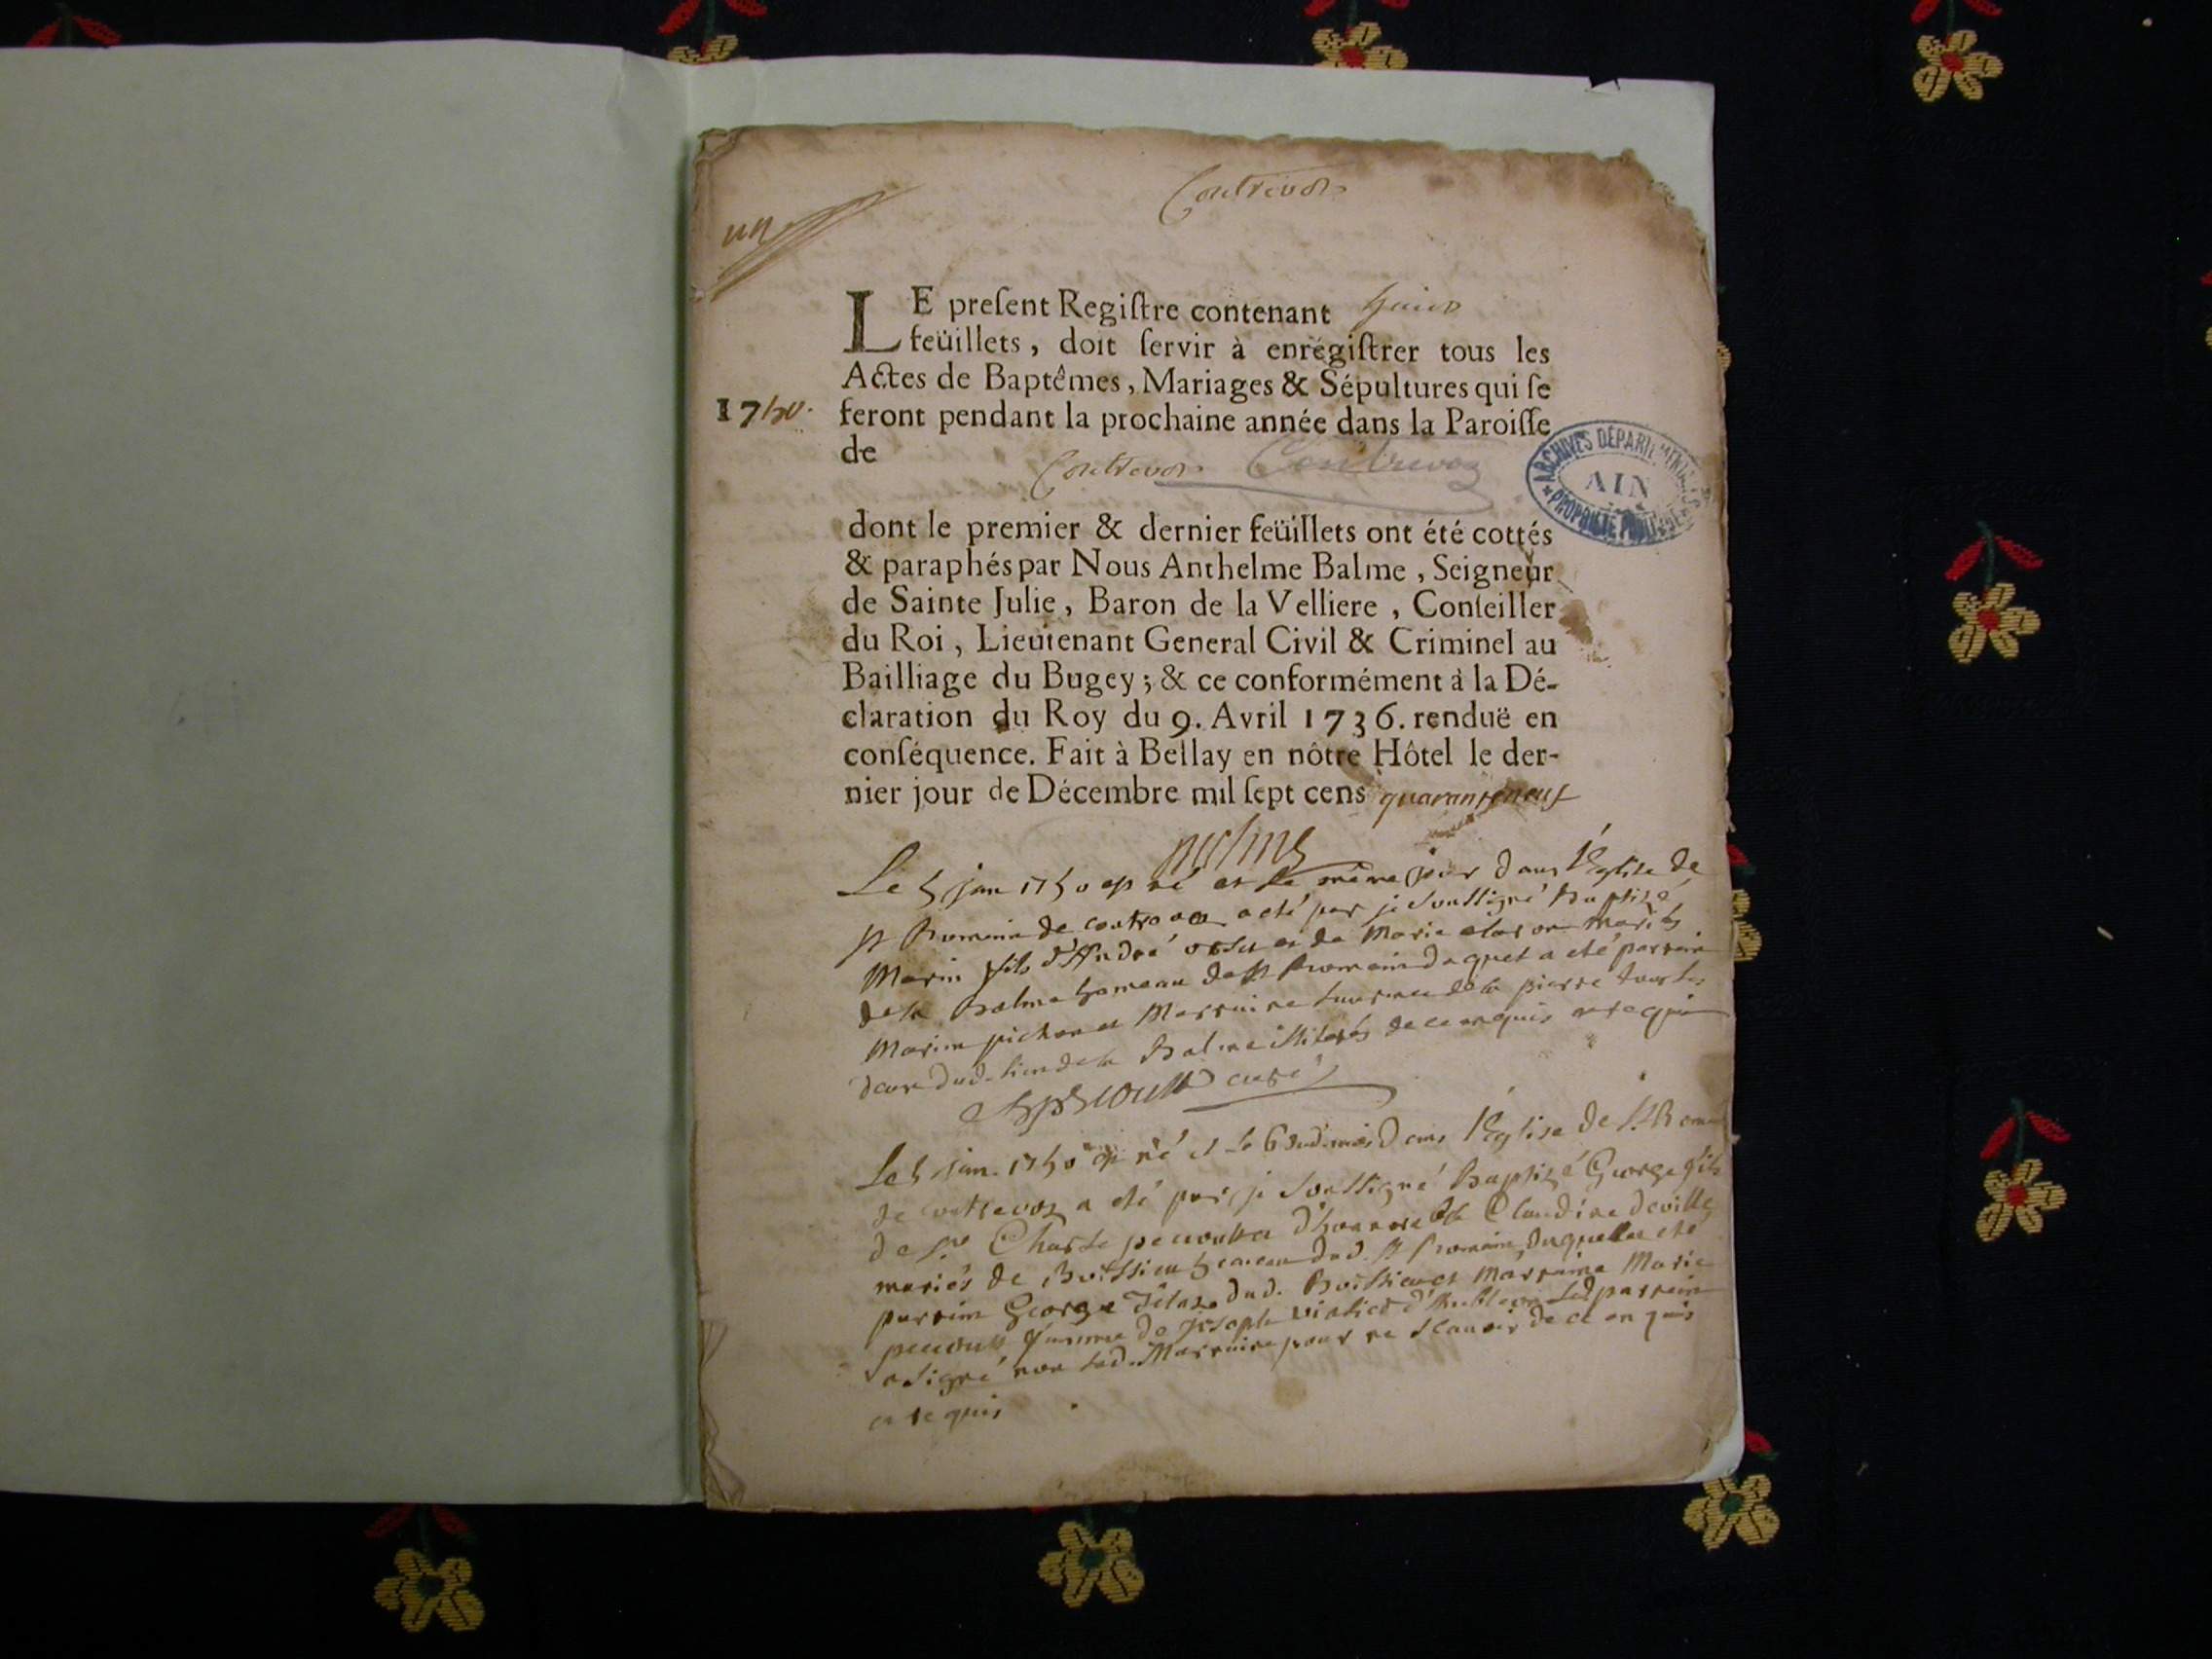 Contrevoz
un
LE preſent Regiſtre contenant huict
feüillets, doit ſervir à enrégiſtrer tous les
Actes de Baptêmes, Mariages & Sépultures qui ſe
1750. feront pendant la prochaine année dans la Paroiſſe
de
Contrevoz Contrevoz
ARCHIVES DÉPARTEMENTALES
AIN
PROPRIÉTÉ PUBLIQUE
dont le premier & dernier feüillets ont été cottés
& paraphés par Nous Anthelme Balme, Seigneur
de Sainte Julie, Baron de la Velliere, Conſeiller
du Roi, Lieutenant General Civil & Criminel au
Bailliage du Bugey; & ce conformément à la Dé-
claration du Roy du 9. Avril 1736. renduë en
conſéquence. Fait à Bellay en nôtre Hôtel le der-
nier jour de Décembre mil ſept cens quaranteneuf
Balme
Le 5 jan 1750 est né et le même jour dans l'Eglise de
St Romain de contrevoz a eté par je soussigné Baptisé
Marin fils d'André et de Marie mariés
de la Balme hameau de St Romain duquel a eté parrain
Marin pichon et Marraine de la pierre tous les
deux dud. lieu de la Balme illiterés de ce enquis et requis
curé
Le 5 jan. 1750 est né et le 6 dud. mois dans l'Eglise de St Romain
de contrevoz a eté par je soussigné Baptizé George fils
de Sr Charle et d'honnete Claudine deville
mariés de Boissieu hameau dud. St Romain, duquel a eté
parrain George dud. Boissieu et Marraine Marie
femme de Joseph led parrain
a signé non lad. Marraine pour ne scavoir de ce enquis
et requis